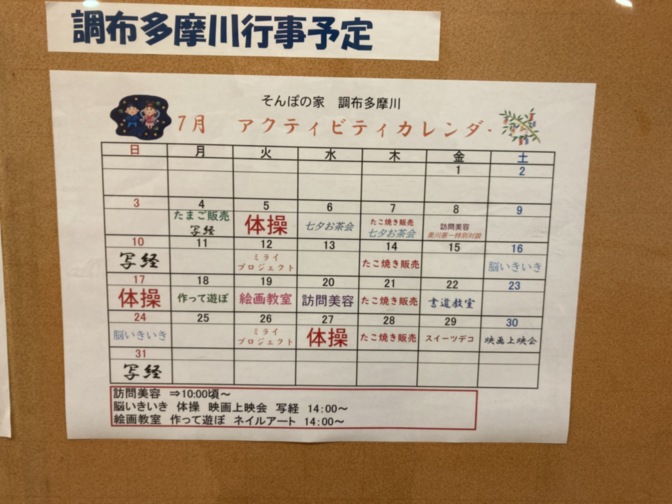 調布多摩川行事予定
そんぽの家 調布多摩川
7月 アクティビティカレンダー
日 月 火 水 木 金 土
1 2
3 4 5 6 7 8 9
たまご販売 写経 体操 七夕お茶会 たこ焼き販売 七夕お茶会 訪問美容
10 11 12 13 14 15 16
写経 ミライプロジェクト たこ焼き販売 脳いきいき
17 18 19 20 21 22 23
体操 作って遊ぼ 絵画教室 訪問美容 たこ焼き販売 書道教室
24 25 26 27 28 29 30
脳いきいき ミライプロジェクト 体操 たこ焼き販売 スイーツデコ 映画上映会
31
写経
訪問美容 ⇒10:00頃~
脳いきいき 体操 映画上映会 写経 14:00~
絵画教室 作って遊ぼ ネイルアート 14:00~